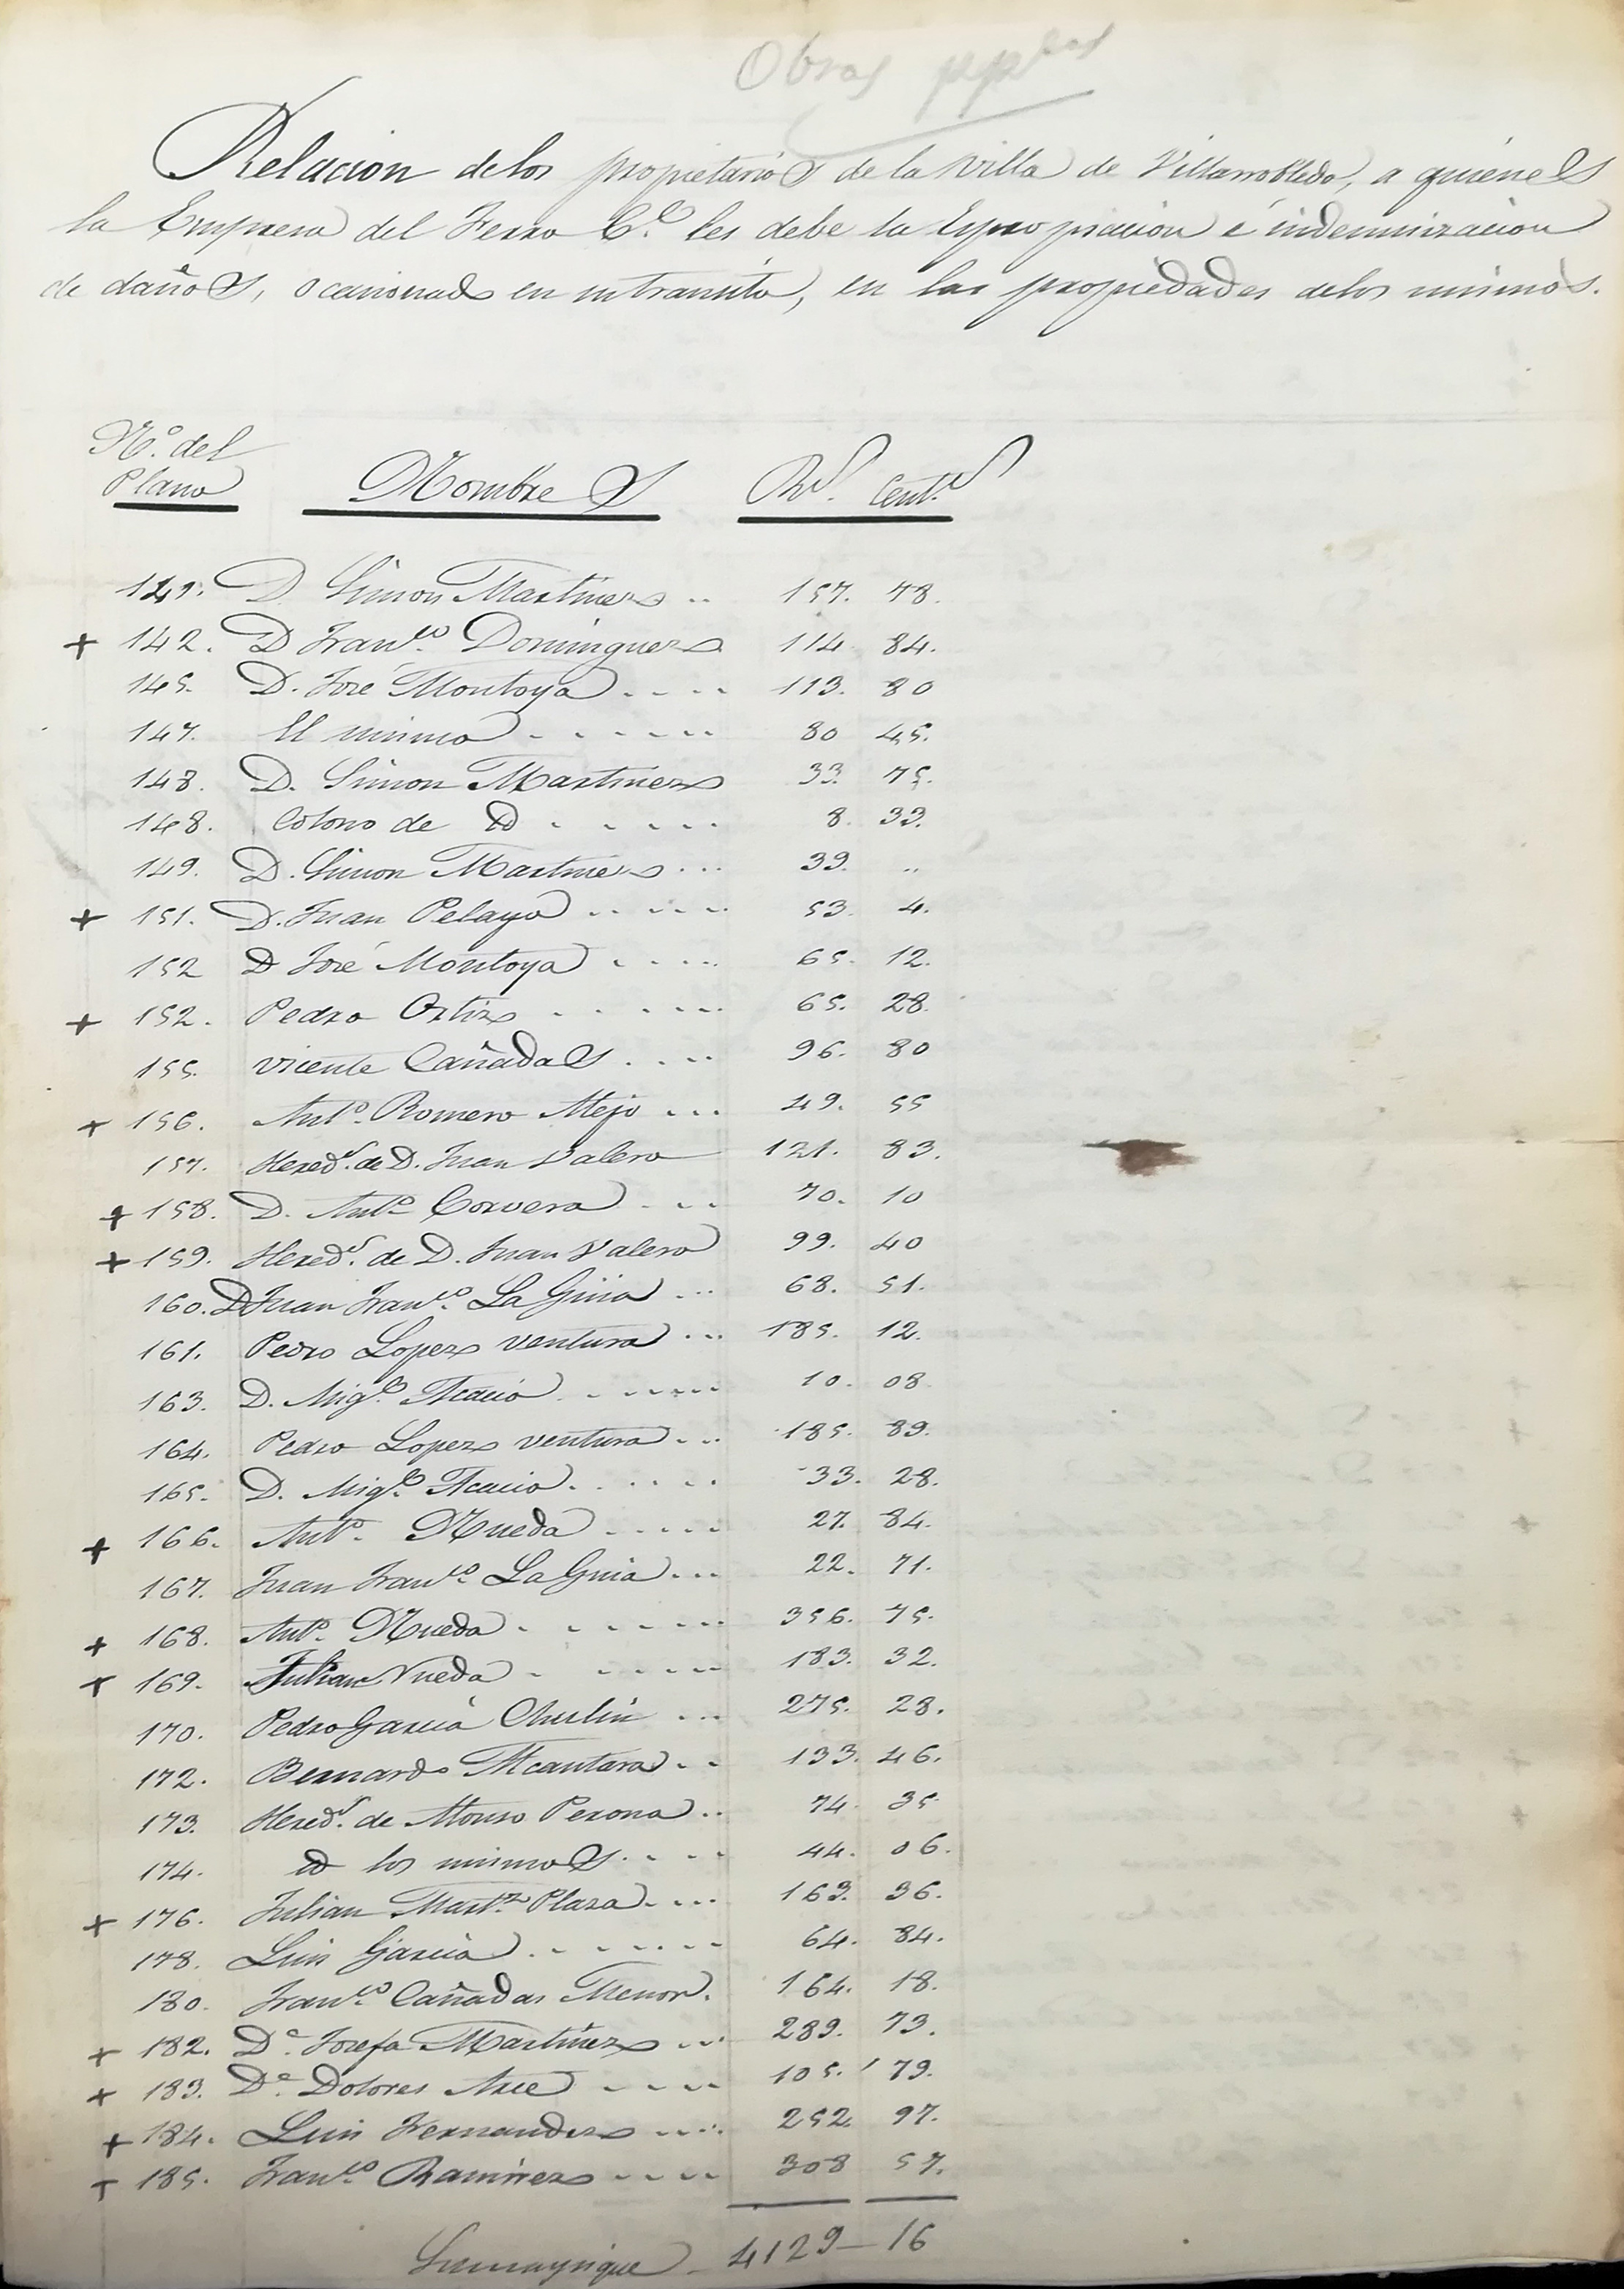 Obras pp.cas
Relacion delos propietarios de la Villa de Villarrobledo, a quiénes
la Empresa del Ferro C.l les debe la Espropiacion é indemnizacion
de daños, ocasionads en su transito, en las propiedades delos mismos.
N.º del Plano Nombres R.s Cent.s
149. D. Simon Martinez .. 157. 78.
+ 142. D Fran.co Dominguez 114. 84.
145. D. José Montoya .... 113. 80
147. El mismo ...... 80 45.
148. D. Simon Martinez 33. 75.
148. Colono de id ..... 8. 33.
149. D. Simon Martinez ... 39. ..
+ 151. D. Juan Pelayo ..... 53. 4.
152 D José Montoya .... 65. 12.
+ 152. Pedro Ortiz ..... 65. 28.
155. Vicente Cañadas .... 96. 80
+ 156. Ant.º Romero Alejo ... 49. 55
157. Hered.s de D. Juan Valero 121. 83.
+ 158. D. Ant.º Corvera ... 70. 10
+ 159. Hered.s de D. Juan Valero 99. 40
160. D Juan Fran.co La Guia ... 68. 51.
161. Pedro Lopez Ventura ... 185. 12.
163. D. Mig.l Acacio ...... 10. 08
164. Pedro Lopez Ventura ... 185. 89.
165. D. Mig.l Acacio ..... 33. 28.
+ 166. Ant.º Nueda ..... 27. 84.
167. Juan Fran.co La Guia ... 22. 71.
+ 168. Ant.º Nueda ...... 356. 75.
+ 169. Julian Nueda ..... 183. 32.
170. Pedro Garcia Churlin ... 275. 28.
172. Bernardo Alcantara .. 133. 46.
173. Hered.s de Alonso Perona .. 74. 35
174. id los mismos .... 44. 06.
+ 176. Julian Mart.z Plaza .... 163. 36.
178. Luis Garcia ...... 64. 84.
180. Fran.co Cañadas Menor. 164. 18.
+ 182. D.a Josefa Martinez ... 289. 73.
+ 183. D.a Dolores Arce .... 105. 79.
+ 184. Luis Fernandez .... 252. 97.
+ 185. Fran.co Ramirez .... 308 57.
Suma y sigue 4129 - 16